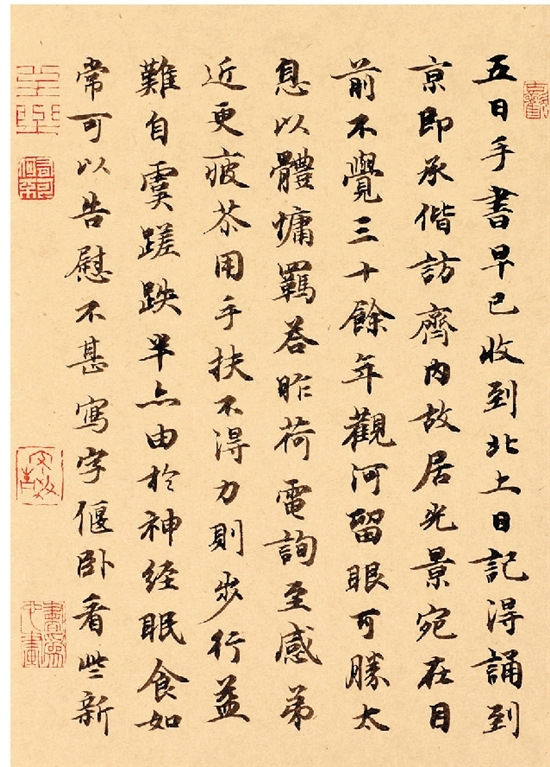 五日手書早已收到北上日記得誦到
京即承偕訪齊内故居光景宛在目
前不覺三十餘年觀河留眼可勝太
息以體慵羈答昨荷電詢至感弟
近更疲苶用手扶不得力則步行益
難自虞蹉跌半亦由於神经眠食如
常可以告慰不甚寫字偃卧看些新
書爲心畫